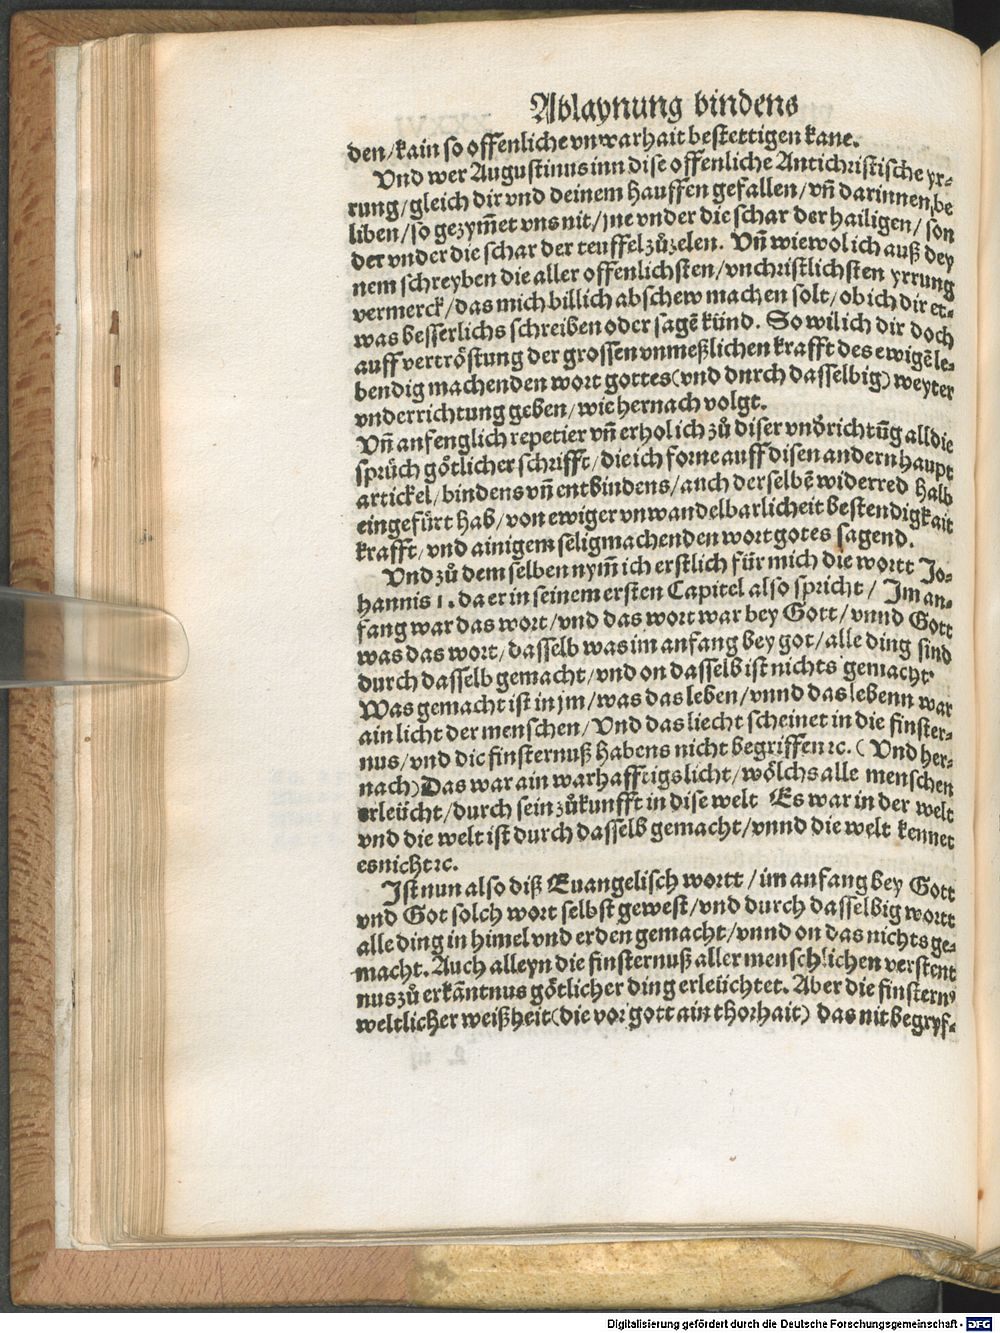 Ablaynung bindens
den/kain so offenliche vnwarhait bestettigen kane.
Vnd wer Augustinus inn dise offenliche Antichristische yr-
rung/gleich dir vnd deinem hauffen gefallen/vñ darinnen be
liben/so gezym̃et vns nit/jne vnder die schar der hailigen/son
der vnder die schar der teuffel zůzelen. Vñ wiewol ich auß dey
nem schreyben die aller offenlichsten/vnchristlichsten yrrung
vermerck/das mich billich abschew machen solt/ob ich dir et-
was besserlichs schreiben oder sagẽ künd. So wil ich dir doch
auff vertröstung der grossen vnmeßlichen krafft des ewigẽ le-
bendig machenden wort gottes(vnd dnrch dasselbig)weyter
vnderrichtung geben/wie hernach volgt.
Vñ anfenglich repetier vñ erhol ich zů diser vnďrichtũg all die
sprüch götlicher schrifft/die ich forne auff disen andern haupt
artickel/bindens vñ entbindens/auch derselbẽ widerred halb
eingefürt hab/von ewiger vnwandelbarlicheit bestendigkait
krafft/vnd ainigem seligmachenden wort gotes sagend.
Vnd zů dem selben nym̃ ich erstlich für mich die wortt Jo-
hannis 1. da er in seinem ersten Capitel also spricht/ Im an-
fang war das wort/vnd das wort war bey Gott/vnnd Gott
was das wort/dasselb was im anfang bey got/alle ding sind
durch dasselb gemacht/vnd on dasselb ist nichts gemacht
Was gemacht ist in jm/was das leben/vnnd das lebenn war
ain licht der menschen/Vnd das liecht scheinet in die finster-
nus/vnd die finsternuß habens nicht begriffen ꝛc. (Vnd her-
nach)Das war ain warhafftigs licht/wölchs alle menschen
erleücht/durch sein zůkunfft in dise welt Es war in der welt
vnd die welt ist durch dasselb gemacht/vnnd die welt kennet
es nicht ꝛc.
Ist nun also diß Euangelisch wortt/im anfang bey Gott
vnd Got solch wort selbst gewest/vnd durch dasselbig wortt
alle ding in himel vnd erden gemacht/vnnd on das nichts ge-
macht. Auch alleyn die finsternuß aller menschlichen verstent
nus zů erkãntnus götlicher ding erleüchtet. Aber die finsternꝰ
weltlicher weißheit(die vor gott ain thorhait) das nit begryf-
Digitalisierung gefördert durch die Deutsche Forschungsgemeinschaft - DFG